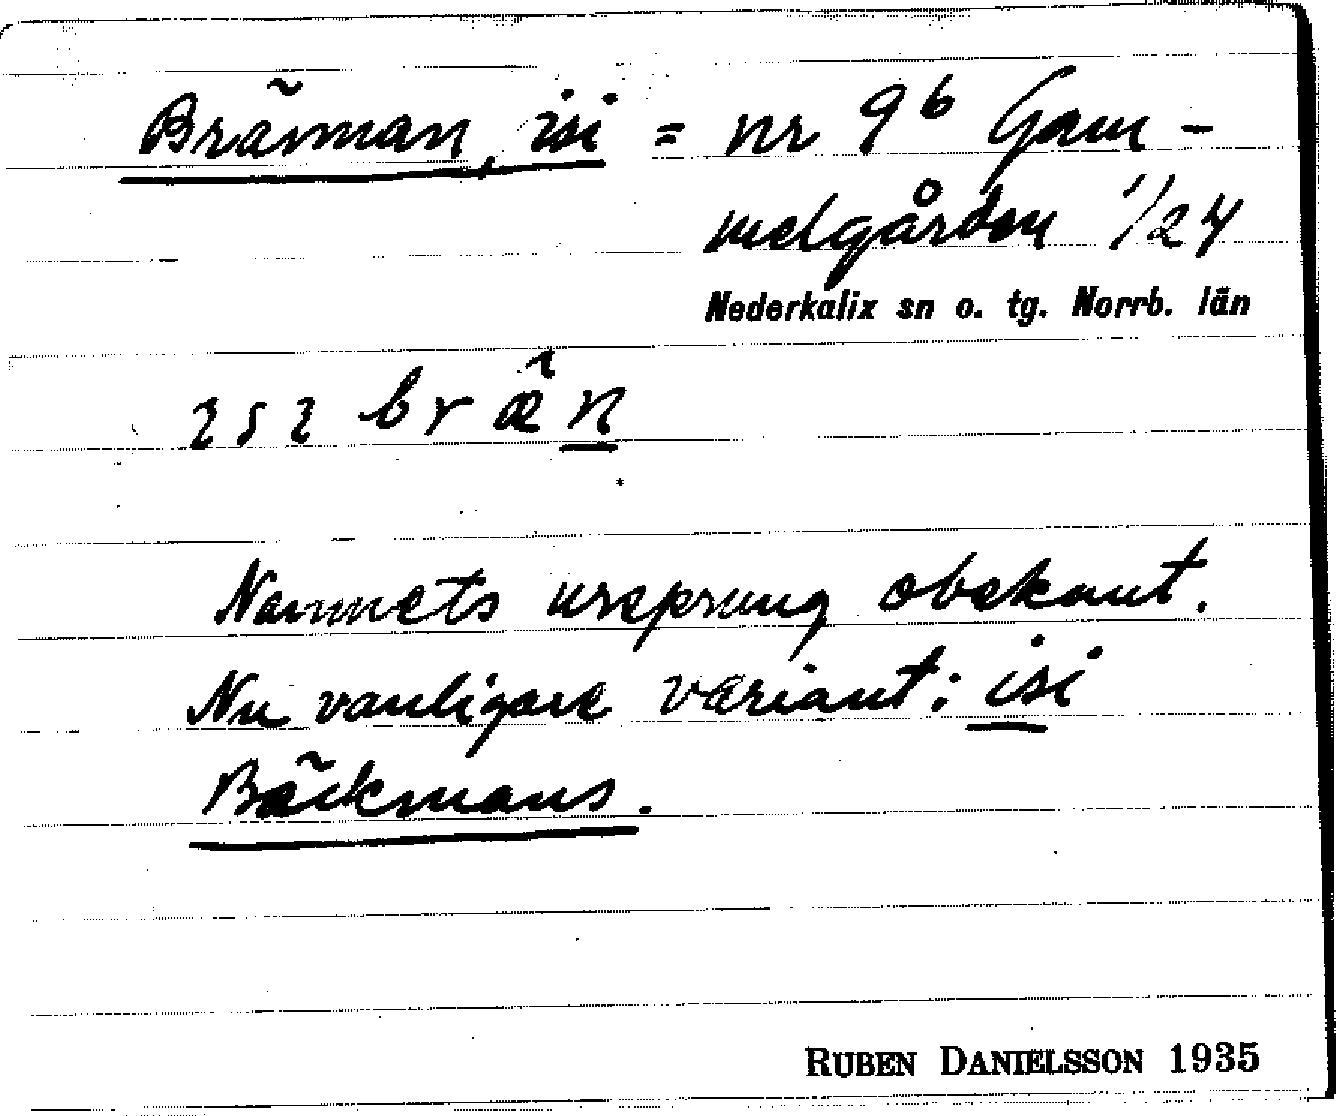 Brännman, isi = nr 9ᵇ Gam-
melgården 1/24
Nederkalix sn o. tg. Norrb. län
ɩsɩ bræ̂n
Namnets ursprung obekant.
Nu vanligare variant: isi
Bäckmans.
RUBEN DANIELSSON 1935